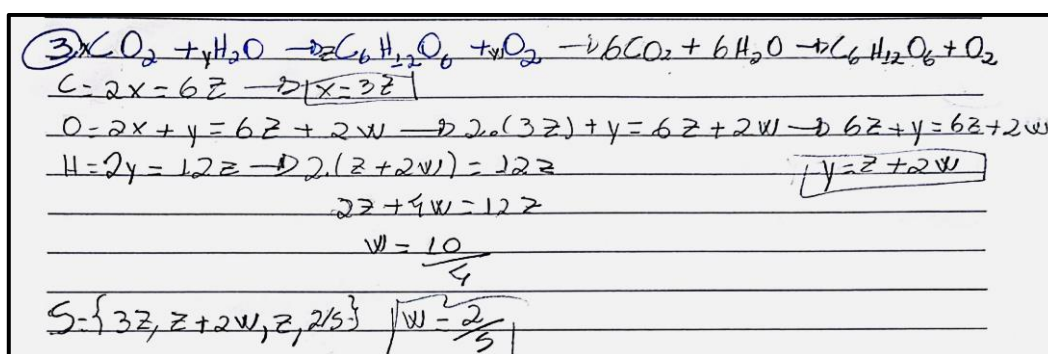 ③ xCO₂ + yH₂O → zC₆H₁₂O₆ + wO₂ → 6CO₂ + 6H₂O → C₆H₁₂O₆ + O₂
C = 2x = 6z → x = 3z
O = 2x + y = 6z + 2w → 2.(3z) + y = 6z + 2w → 6z + y = 6z + 2w
H = 2y = 12z → 2.(z + 2w) = 12z y = z + 2w
2z + 4w = 12z
w = 10/4
S = {3z, z + 2w, z, 2/5} w = 2/5